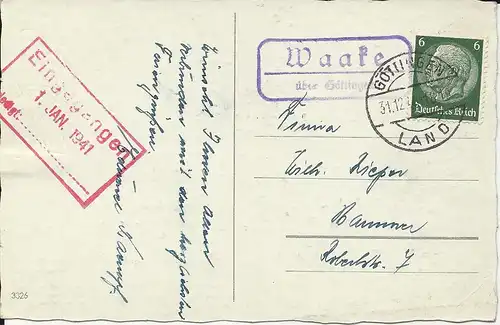 Eingegangen
1. JAN. 1941
Wünscht Ihnen allen
verbunden mit den herzlichsten
Waake
über Götting
GÖTTINGEN
31.12
LAND
6 6
Deutsches Reich
Firma
Wilh. Kieper
Hannover
Robertstr. 7
3326